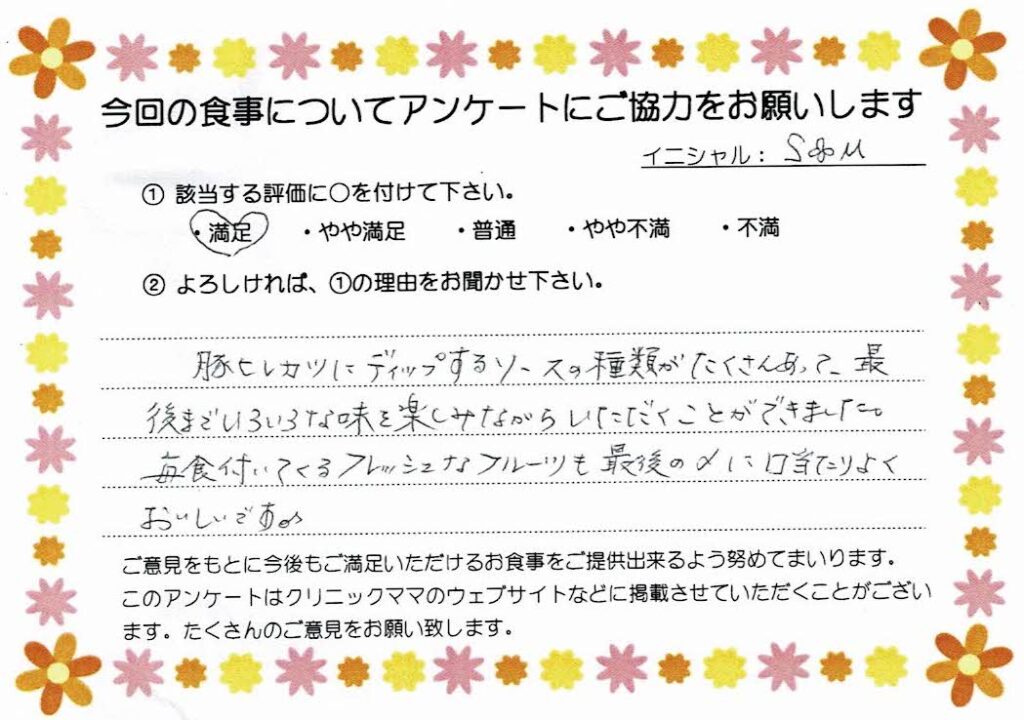 今回の食事についてアンケートにご協力をお願いします
イニシャル： S&M
① 該当する評価に〇を付けて下さい。
・満足 ・やや満足 ・普通 ・やや不満 ・不満
② よろしければ、①の理由をお聞かせ下さい。
豚ヒレカツにディップするソースの種類がたくさんあって、最
後までいろいろな味を楽しみながらいただくことができました。
毎食付いてくるフレッシュなフルーツも最後の〆に口当たりよく
おいしいです♪
ご意見をもとに今後もご満足いただけるお食事をご提供出来るよう努めてまいります。
このアンケートはクリニックママのウェブサイトなどに掲載させていただくことがござい
ます。たくさんのご意見をお願い致します。